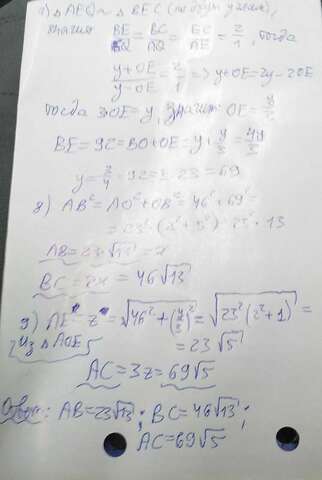 △AEQ ~ △BEC (по двум углам),
значит BE/EQ = BC/AQ = EC/AE = 2/1, тогда
(y+OE)/(y-OE) = 2/1 => y+OE = 2y - 2OE
тогда 3OE = y, значит: OE = y/3
BE = 92 = BO + OE = y + y/3 = 4y/3
y = 3/4 · 92 = 3 · 23 = 69
8) AB² = AO² + OB² = 46² + 69² =
= 23² · (2² + 3²) = 23² · 13
AB = 23·√13 = x
BC = 2x = 46√13
9) AE = z = √(46² + (y/3)²) = √(23²(2²+1)) =
Из △AOE = 23√5
AC = 3z = 69√5
Ответ: AB = 23√13; BC = 46√13;
AC = 69√5